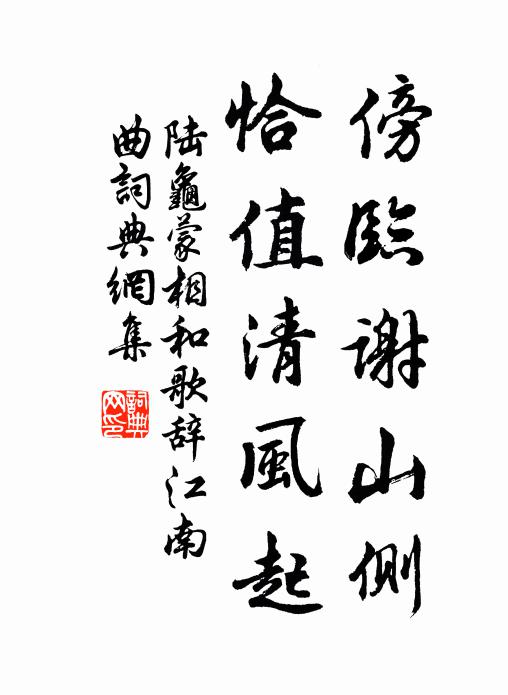 傍臨謝山側
恰值清風起
陆龜蒙相和歌辞江南
曲詞典網集
詞典
网印